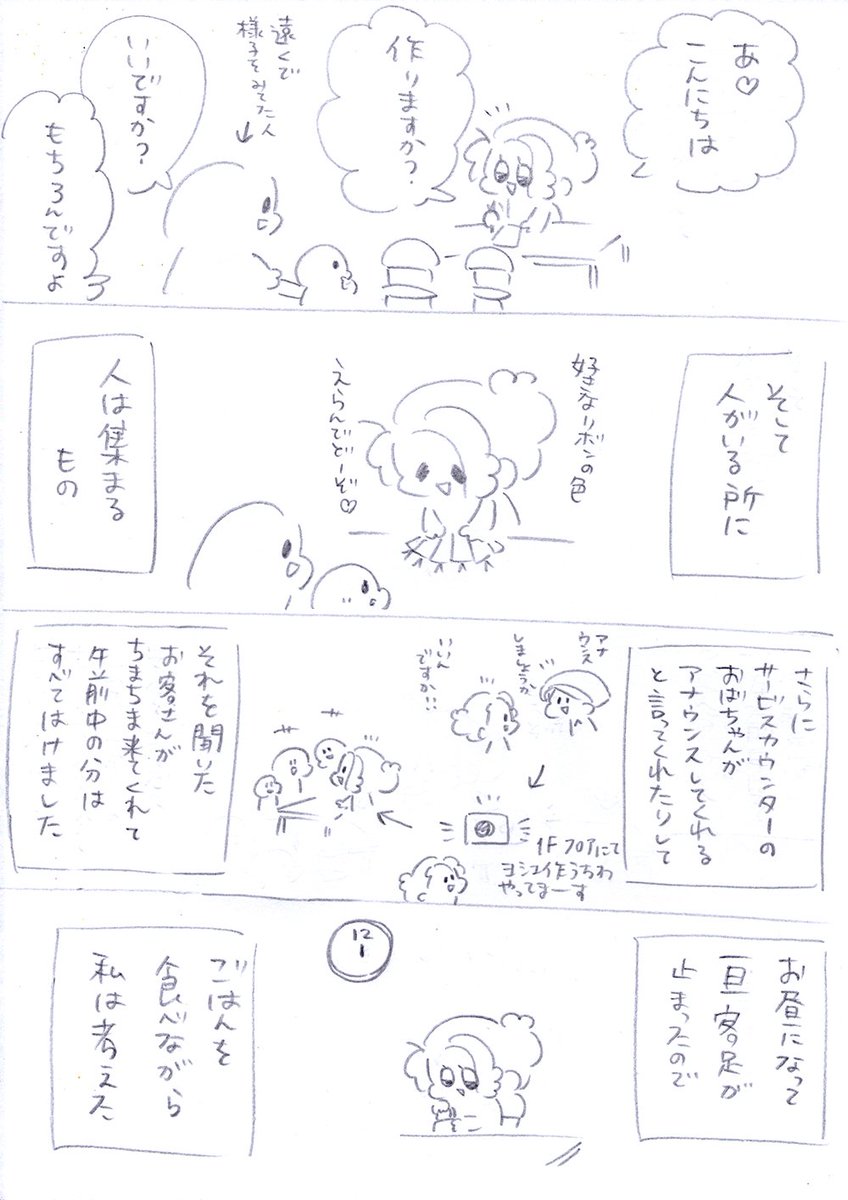 あ♡
こんにちは
作りますか?
遠くで
様子をみてた人
いいですか?
もちろんですよ
そして
人がいる所に
好きなリボンの色
えらんでどーぞ♡
人は集まる
もの
さらに
サービスカウンターの
おばちゃんが
アナウンスしてくれる
と言ってくれたりして
アナ
ウンス
しましょうか
いいん
ですか!?
1Fフロアにて
うちわ
やってまーす
それを聞いた
お客さんが
ちまちま来てくれて
午前中の分は
すべてはけました
お昼になって
一旦客足が
止まったので
12
ごはんを
食べながら
私は考えた